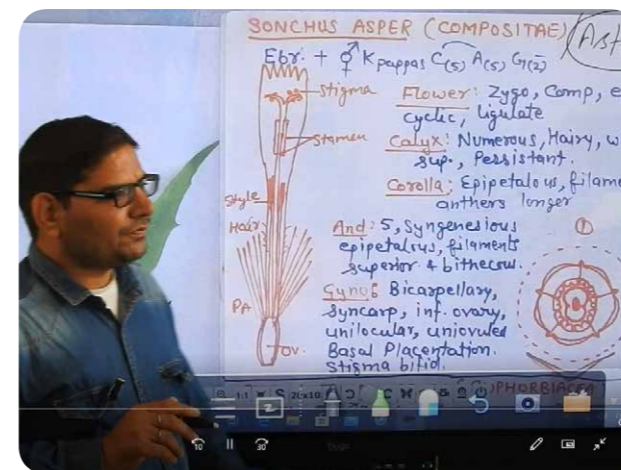 SONCHUS ASPER (COMPOSITAE) (Ast
Ebr. + ⚥ K pappas C(5) A(5) G(2̄)
Stigma
Stamen
Style
Hair
PA
OV.
Flower: Zygo, Comp, e
cyclic, ligulate
Calyx: Numerous, Hairy, w
sup., Pessistant.
Corolla; Epipetalous, filame
anthers longer
And: 5, Syngenesious
epipetalous, filaments
superior & bithecous.
Gyno: Bicarpellary,
Syncarp, inf. ovary,
unilocular, uniovuled
Basal Placentation.
Stigma bifid.
①
PHORBIACEA
1:1
10
30